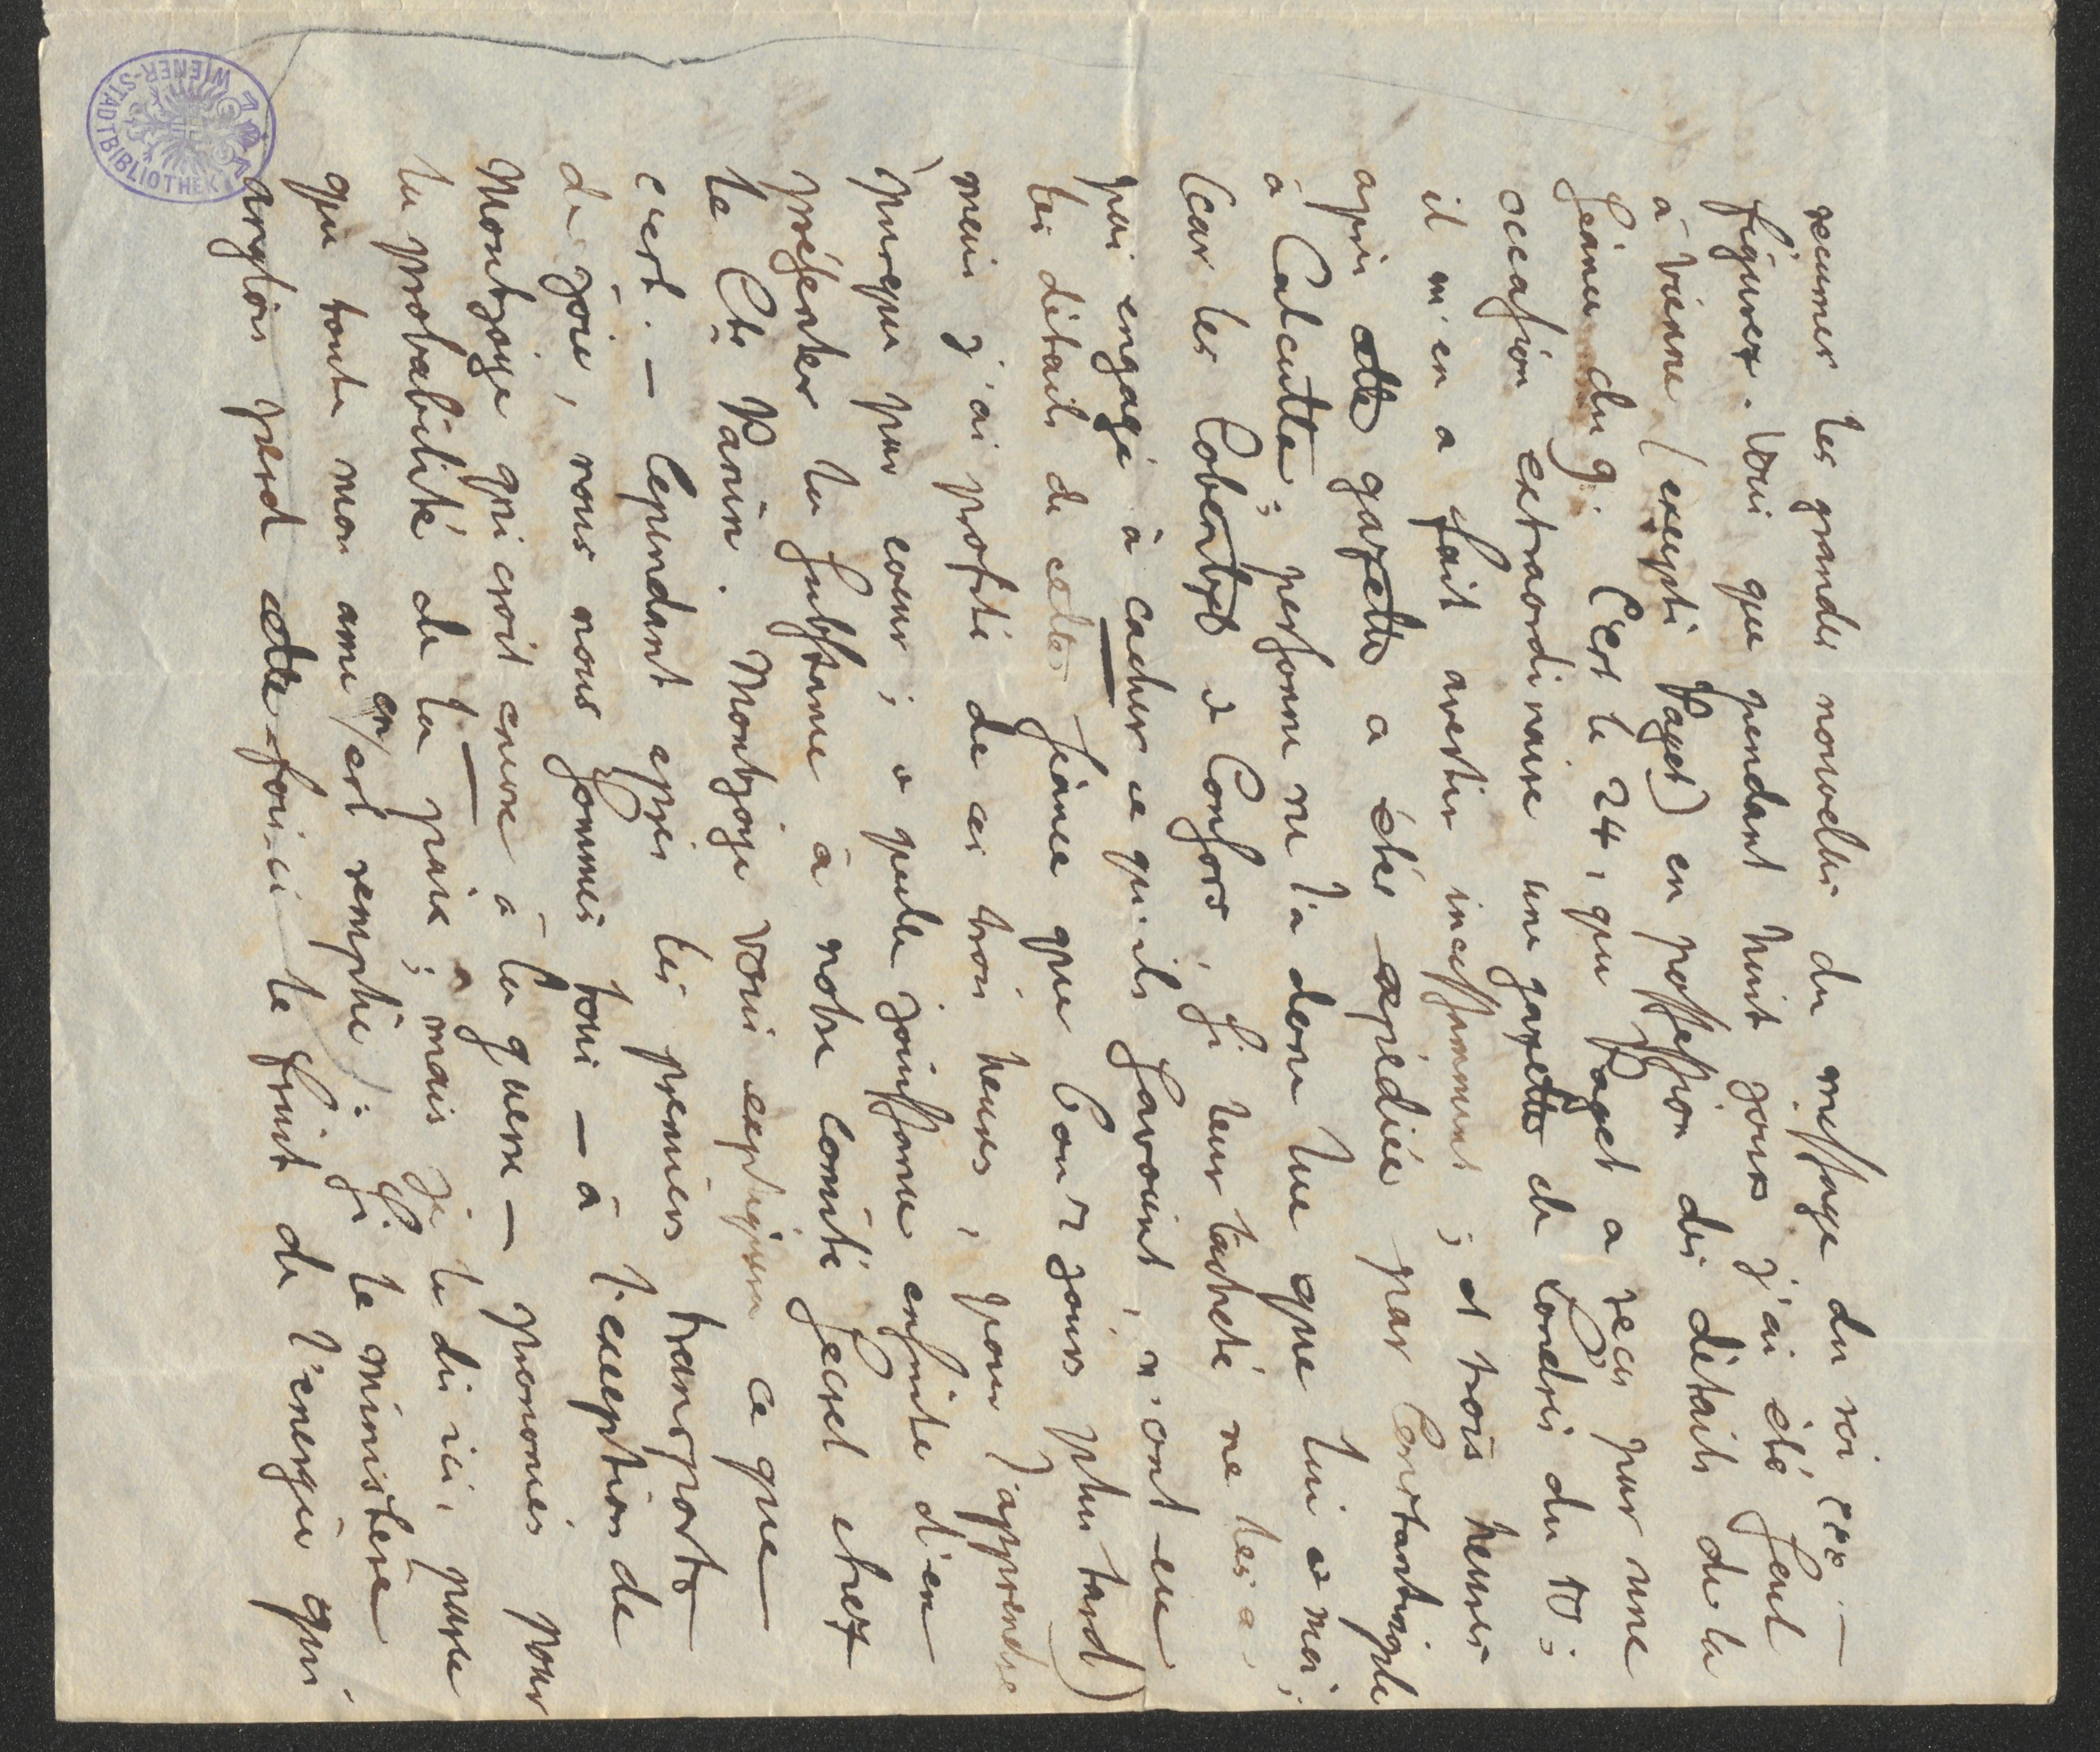 reçumes les grandes nouvelles du message du roi ccc. —
figurez-vous que pendant huit jours j'ai été seul
à Vienne (excepté Paget) en possession des détails de la
séance du 9. C'est le 24, que Paget a reçu par une
occasion extraordinaire une gazette de Londres du 10;
il m'en a fait avertir incessament; et trois heures
après cette gazette a étée expédiée par Constantinople
à Calcutta; personne ne l'a donc lue que lui et moi;
(car les Cobentzel et Consors, si leur lacheté ne les a
pas engagé à cacher ce qu'ils savoient, n'ont eu
les détails de cette séance que 6 ou 7 jours plus tard)
mais j'ai profité de ces trois heures, pour l'apprendre
presque par coeur; et quelle jouissance ensuite d'en
présenter la substance à notre Comité secret chez
le Cte Panin. Montjoye vous expliquera ce que
c'est. — Cependant après les premiers transports
de joie, nous nous sommes tous — à l'exception de
Montjoye qui croit encore à la guerre — prononcés pour
la probabilité de la paix; mais je le dis ici, parce
que toute mon ame en est remplie: si le ministère
anglois perd cette fois-ci le fruit de l'énergie qui
WIENER-STADTBIBLIOTHEK